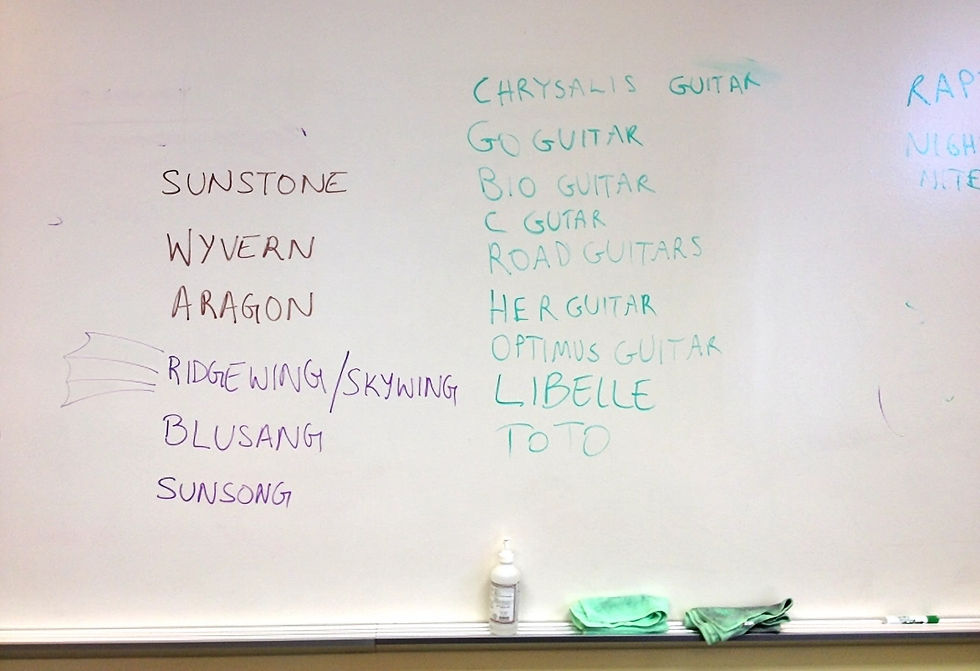 SUNSTONE
WYVERN
ARAGON
RIDGEWING/SKYWING
BLUSANG
SUNSONG
CHRYSALIS GUITAR
GO GUITAR
BIO GUITAR
C GUTAR
ROAD GUITARS
HER GUITAR
OPTIMUS GUITAR
LIBELLE
TOTO
RAP
NIGH
NITE